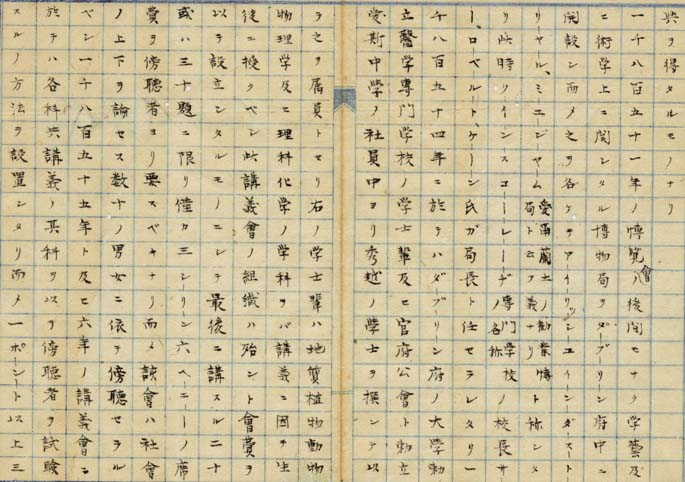 典ヲ得タルモノナリ
一千八百五十一年ノ博覧會ノ後間モナク学藝及
ニ術学上ニ関シタル博物局ヲダーブリン府中ニ
開設シ而メ之ヲ名ケテアイリッシユインダストー
リヤル、ミユージヤム愛留蘭土ノ勧業博局ト云フ義ナリト称シタ
リ此時クインスコーレーヂ専門学校ノ名称ノ校長サ
ー、ロベルト、ケーン氏ガ局長ト任セラレタリ一
千八百五十四年ニ於テハダブーリン府ノ大学勅
立醫学専門学校ノ学士輩及ヒ官府公會ト勅立
愛斯中学ノ社員中ヨリ秀越ノ學士ヲ撰シテ以
テ之ヲ属員トセリ右ノ学士輩ハ地質植物動物
物理学及ヒ理科化学ノ学科ヲバ講義ニ因テ生
徒ニ授ケベシ此講義會ノ組織ハ殆ント會費ヲ
以テ設立シタルモノニシテ最後ニ講スル二十
或ハ三十題ニ限リ僅カ三シーリン六ペニーノ席
費ヲ傍聴者ヨリ要スベキナリ而メ該會ハ社會
ノ上下ヲ論セス数十ノ男女ニ依テ傍聴セラル
ベシ一千八百五十五年ト及ヒ六年ノ講義會ニ
於テハ各科共講義ノ其科ヲ以テ傍聴者ヲ試験
スルノ方法ヲ設置シタリ而メ一ポーント以上三